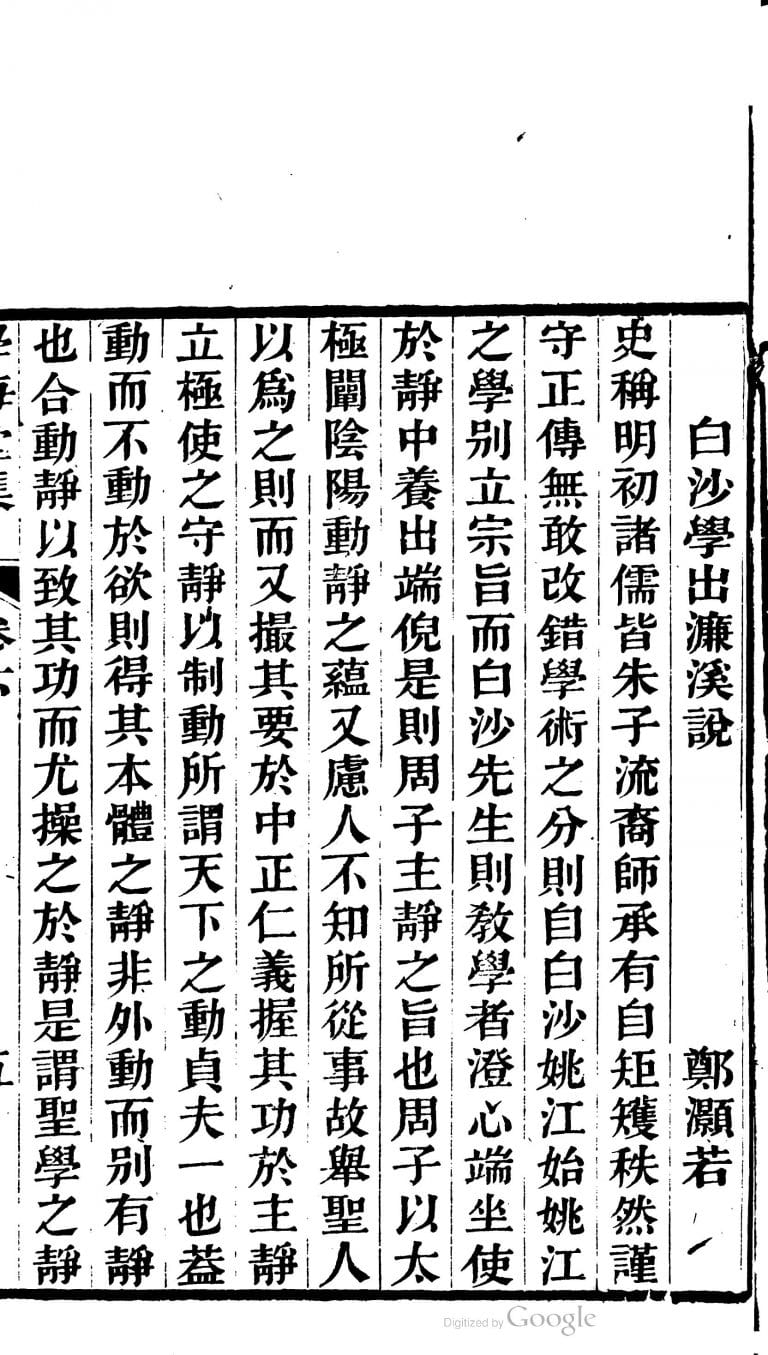 白沙學出濂溪說 鄭灝若
史稱明初諸儒皆朱子流裔師承有自矩矱秩然謹
守正傳無敢改錯學術之分則自白沙姚江始姚江
之學别立宗旨而白沙先生則敎學者澄心端坐使
於靜中養出端倪是則周子主靜之旨也周子以太
極闡陰陽動靜之蘊又慮人不知所從事故舉聖人
以爲之則而又撮其要於中正仁義握其功於主靜
立極使之守靜以制動所謂天下之動貞夫一也葢
動而不動於欲則得其本體之靜非外動而别有靜
也合動靜以致其功而尤操之於靜是謂聖學之靜
Digitized by Google